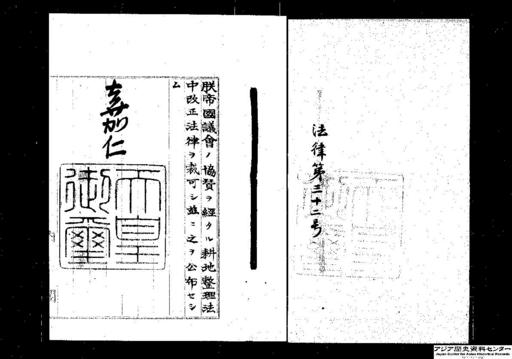 法律第三十二号
朕帝國議會ノ協賛ヲ經タル耕地整理法
中改正法律ヲ裁可シ茲ニ之ヲ公布セシ
ム
嘉仁
天皇
御璽
アジア歴史資料センター
Japan Center for Asian Historical Records